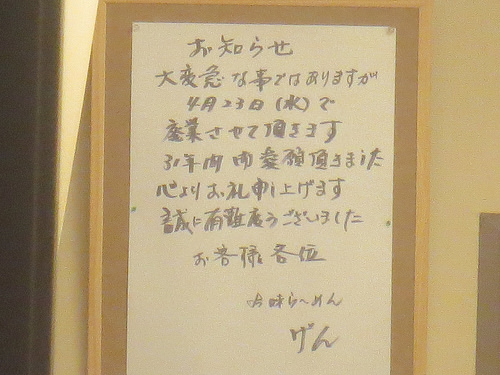 お知らせ
大変急な事ではありますが
4月23日(水)で
廃業させて頂きます
31年間御愛顧頂きました
心よりお礼申し上げます
誠に有難度うございました
お客様各位
吟味らーめん
げん